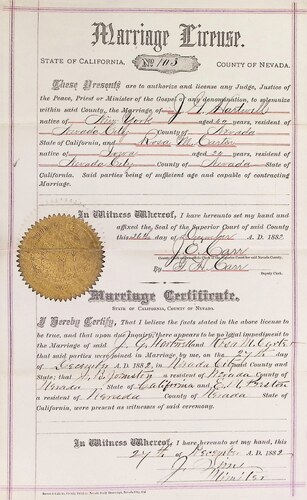 Marriage License.
STATE OF CALIFORNIA, No. 103 COUNTY OF NEVADA.
These Presents are to authorize and license any Judge, Justice of
the Peace, Priest or Minister of the Gospel of any denomination, to solemnize
within said County, the Marriage of J. G. Hartwell
native of New York aged years, resident of
Nevada City County of Nevada
State of California, and Rosa M. Carter
native of Iowa aged years, resident of
Nevada City County of Nevada State of
California. Said parties being of sufficient age and capable of contracting
Marriage.
In Witness Whereof, I have hereunto set my hand and
affixed the Seal of the Superior Court of said County
this day of December A. D. 1882
J. E. Carr
By Carr
Deputy Clerk.
Marriage Certificate.
STATE OF CALIFORNIA, COUNTY OF NEVADA.
I Hereby Certify, That I believe the facts stated in the above license
to be true, and that upon due inquiry, there appears to be no legal impediment to
the Marriage of said J. G. Hartwell and Rosa M. Carter
that said parties were joined in Marriage by me, on the 27th day
of December A. D. 1882, in Nevada City said County and
State; that Johnston a resident of Nevada County of
Nevada State of California and Preston
a resident of Nevada County of Nevada State of
California, were present as witnesses of said ceremony.
In Witness Whereof, I have hereunto set my hand, this
27th day of December A. D. 1882
J. Sims
Minister